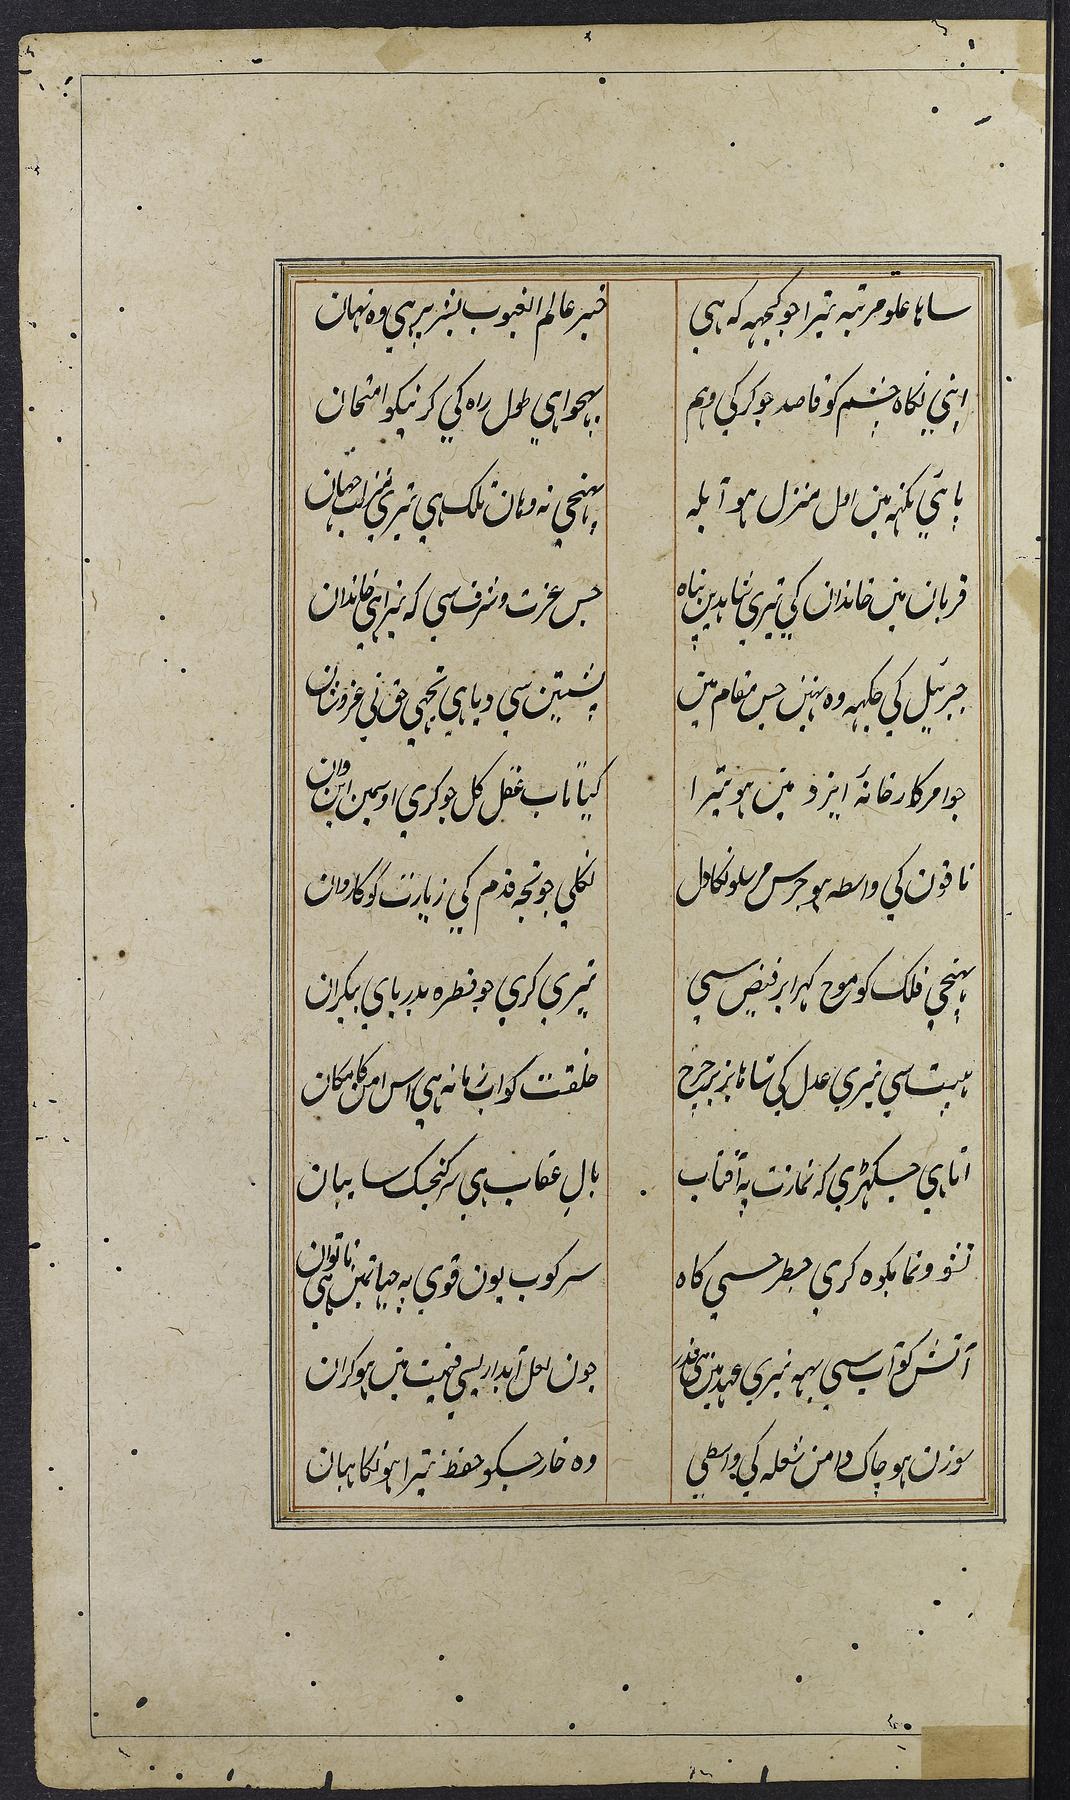 ساہا علو مرتبہ تیرا جو کچہہ کہ ہی
خبر عالم الغیوب بشر پر ہی وہ نہان
اپنی نکاہ چشم کو قاصد جو کر کی وہم
بہیجوا ہی طول راہ کی کرنیکو امتحان
پای نکہہ مین اول منزل ہو آبلہ
پہنچی نہ وہان تلک ہی تیری منزلت جہان
قربان مین خاندان کی تیری شاہ دین پناہ
جس عزت و شرف سی کہ تیرا ہی خاندان
جبرئیل کی جکہہ وہ نہین جس مقام مین
پشتین سی دیا ہی تجہی حق نی عز و شان
جو امر کارخانۂ ایزد مین ہو تیرا
کیا تاب عقل کل جو کری اوسمین این و ان
ناقون کی واسطہ ہو جرس مرسلونکا دل
نکلی جو تجہ قدم کی زیارت کو کاروان
پہنچی فلک کو موج کہر ابر فیض سی
تیری کری جو قطرہ بدریای بیکران
ہیبت سی تیری عدل کی شاہا بزیر چرخ
خلقت کو اب زمانہ ہی اس امن کا مکان
اتا ہی جسکہڑی کہ تمازت پہ آفتاب
بالِ عقاب ہی سر کنجشک سایبان
نشو و نما بکوہ کری جسطرحسی کاہ
سرکوب یون قوی پہ حیاتمین ہی ناتوان
آتش کو آب سی یہہ تیری عہد مین ہی قدر
جون لعل آبدار لیی قیمت مین ہو کران
سوزن ہو چاک دامن شعلہ کی واسطی
وہ خار جسکو حفظ تیرا ہو نکاہبان